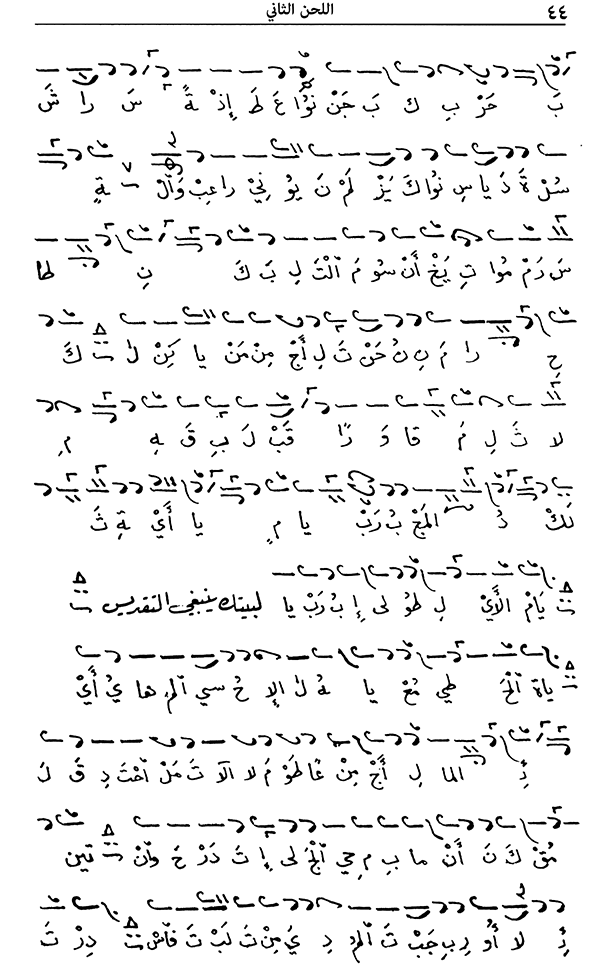 ٤٤ اللحن الثاني
بَ خَرْ بِ كَ بَ جَنْ نُوَا عَ طَ إِذْ ةً سَ را شَ
سُلْ ةَ دَ ياسِ نُوا كَ يَزْ لَمْ نَ يُو نِيْ راعِبْ وَالْ ةٍ
سَ رَمْ مُوا تِ يَخْ أَنْ سُومَ الْتَ لِ بَ كَ نِ طا
حِ را مَ بِ نُ حَنْ تَ لِ أَجْ مِنْ مَنْ يا كِنْ لا كَ
لا ثَ لِ مُ قا وَ رًا قَبْ لَ بِ قَ هِ مِ
لَكْ دُ المَجْ بُ رَبْ يا مِ يا أَيْ ةِ ثَ
يَامْ الأَيْ لِ طُو لى إِ بُ رَبْ يا لبيتك ينبغي التقديس
ياة الْحَ طي مُعْ يا هُ لا الإِ حُ سي الْمَ ها يُ أَيْ
ئِ الما لِ أَجْ مِنْ غَاطَوْمَ لا الآ تَ مَلْ احْتَ دِ قَ لَ
مُقْ كَ نَ أَنْ ما بِ مِ حي الْجَ لى إِ تَ دَرْ حَ وانْ تين
ئِ لا أُو رِبِ جَبْ تَ الْمُ دِ يَ مِنْ تَ لَبْ تَ فَاسْ دِرْ تَ